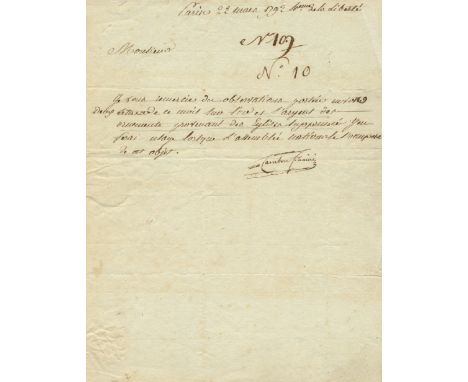 Paris 22 mars 1792 4eme de la liberté
N° 109
Monsieur
N.° 10
Je vous remercie des observations portées
de ce mois sur l'or et l'argent des
ornements provenant des Eglises supprimées J'en
ferai usage lorsque l'assemblée nationale s'occupera
de cet objet.
Cambon